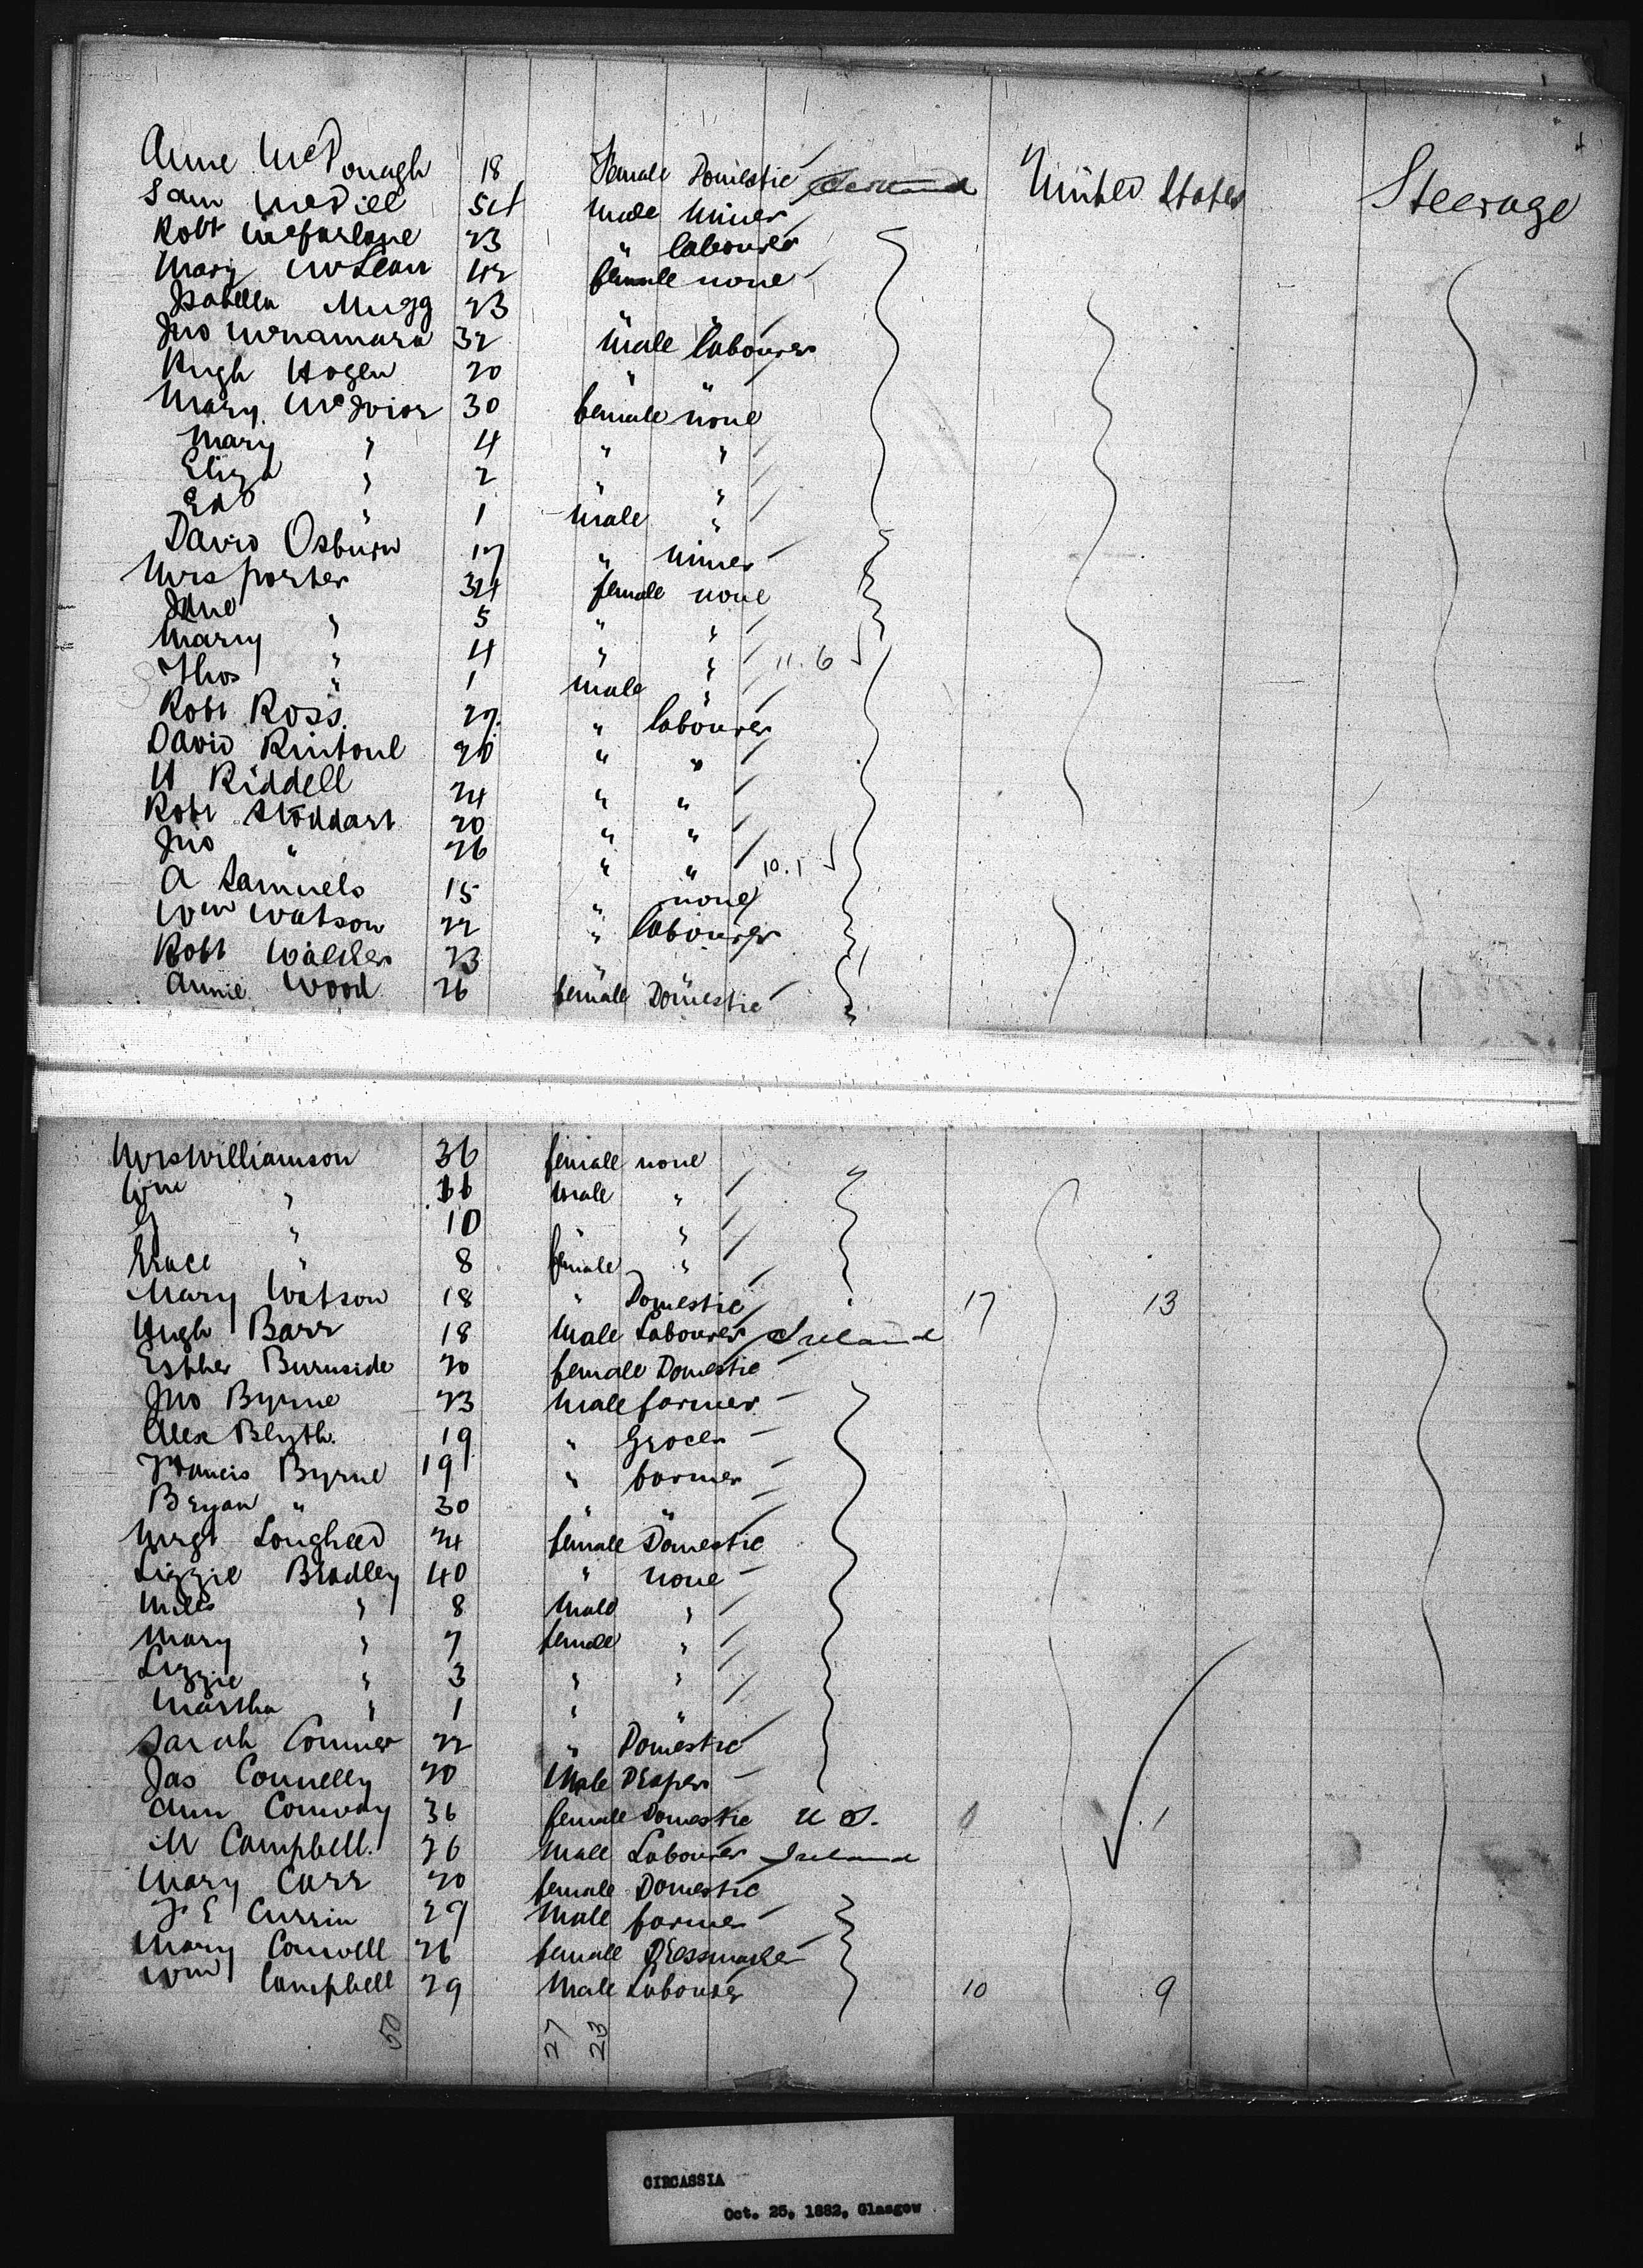 Anne McDonagh 18 Female Domestic Scotland United States Steerage
Sam McDill 54 Male Miner
Robt McFarlane 23 " labourer
Mary McLean 42 female none
Isabella Mugg 23 " "
Jno McNamara 32 Male labourer
Hugh Hogen 20 " "
Mary McIvior 30 female none
Mary " 4 " "
Eliza " 2 " "
Ed " 1 male "
David Osburn 17 " Miner
Mrs porter 34 female none
Jane " 5 " "
Marry " 4 " " 11.6
Thos " 1 male "
Robt Ross 29 " labourer
David Rintoul 20 " "
H Riddell 24 " "
Robt Stoddart 20 " "
Jno " 26 " " 10.1
A Samuels 15 " none
Wm Watson 22 " labourer
Robt Walker 23 " "
Annie Wood 26 female Domestic
Mrs Williamson 36 female none
Wm " male "
G " 10 "
Grace " 8 female "
Mary Watson 18 " Domestic 17 13
Hugh Barr 18 Male Labourer Ireland
Esther Burnside 20 female Domestic
Jno Byrne 23 Male farmer
Alex Blyth. 19 " Grocer
Francis Byrne 19 " farmer
Bryan " 30 " "
Mrgt Lougheed 24 female Domestic
Lizzie Bradley 40 " none
Miles " 8 Male "
Mary " 7 female "
Lizzie " 3 " "
Martha " 1 " "
Sarah Conner 22 " Domestic
Jas Connelly 20 Male Draper
Ann Conway 36 female Domestic U S. 0 1
M Campbell. 26 Male Labourer Ireland
Mary Carr 20 female Domestic
J E Currin 29 Male farmer
Mary Conwell 26 female Dressmaker
Wm Campbell 29 Male Labourer 10 9
50 27 23
CIRCASSIA
Oct. 25, 1882, Glasgow